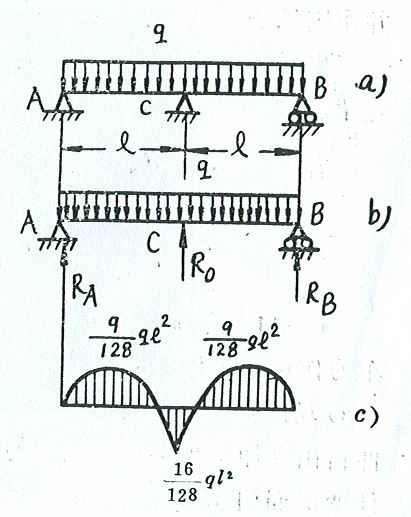 q
A C B a)
l l
q
A C B b)
R_A R_0 R_B
9/128 ql² 9/128 ql²
c)
16/128 ql²